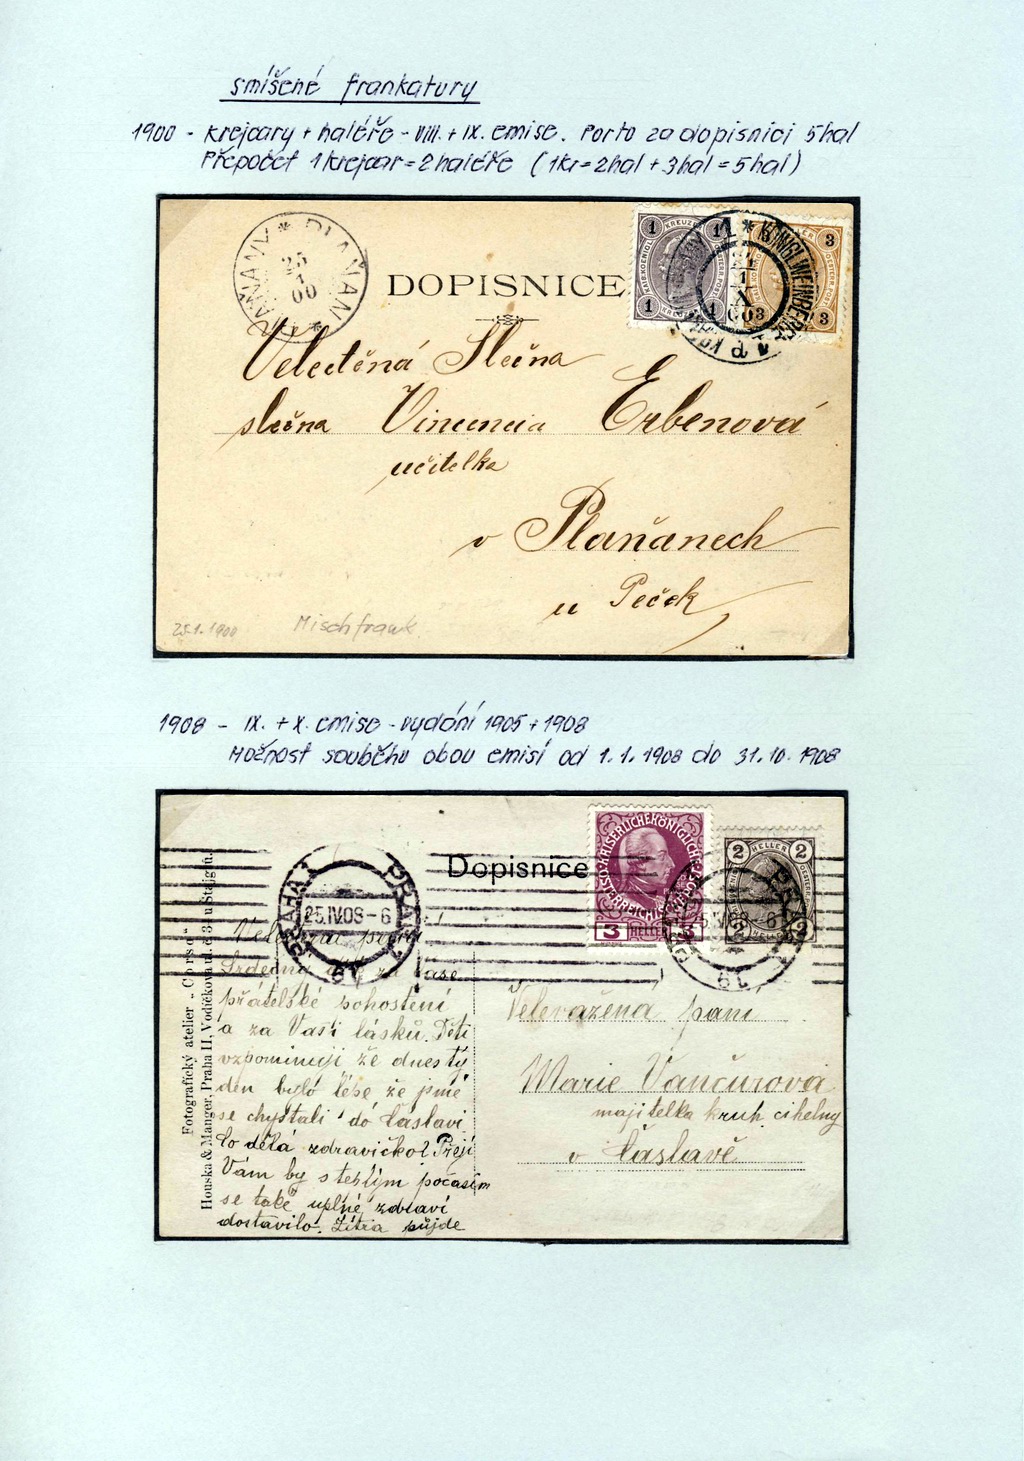 smíšené frankatury
1900 - krejcary + haléře - VIII. + IX. emise. Porto za dopisnici 5hal
Přepočet 1 krejcar = 2 haléře (1kr = 2hal + 3hal = 5hal)
DOPISNICE
1 KREUZER 1
1 1
3 3
3 3
KÖNIGL. WEINBERGE
PLAŇANY * PLAŇAN
25
1
00
Veletěná Slečna
slečna Vincencia Erbenová
učitelka
v Plaňanech
u Peček
25.1.1900 Mischfrank
1908 - IX. + X. emise - vydání 1905 + 1908
Možnost souběhu obou emisí od 1.1.1908 do 31.10.1908
Dopisnice
3 HELLER 3
2 HELLER 2
2 HELLER 2
PRAHA 1 PRAG 1
25.IV.08-6
19
Fotografický atelier „Corso“
Houska & Manger, Praha II., Vodičkova ul. č. 34 u Štajgrů.
za Vaše
přátelské pohostění
a za Vaši lásku. Děti
vzpomínují že dnes tý
den bylo lépe že jsme
se chystali do Čáslavi
Co dělá zdravíčko? Přeji
Vám by s teplým počasím
se také úplné zdraví
dostavilo. Zítra půjde
Velevážená paní
Marie Vančurová
majitelka kruh. cihelny
v Čáslavě